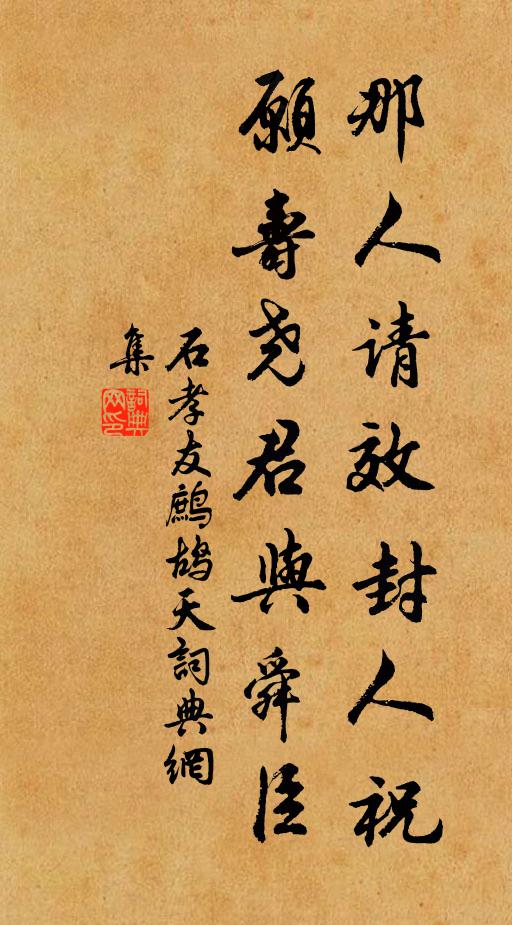 那人请效封人祝
願壽尧君與舜臣
石孝友鷓鴣天詞典網
集
詞典
网印